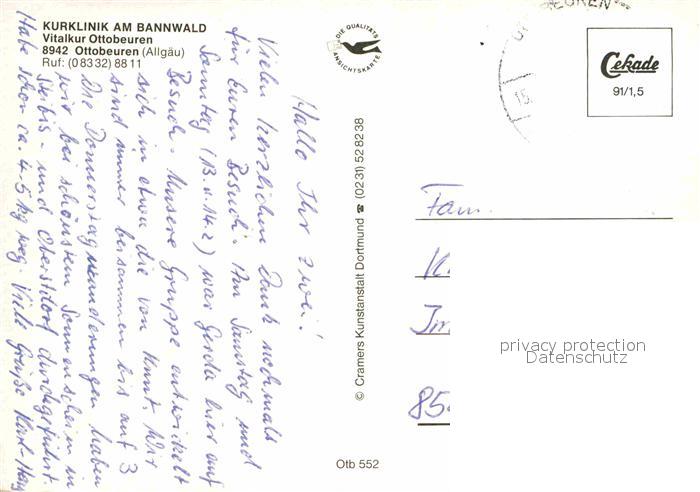 KURKLINIK AM BANNWALD
Vitalkur Ottobeuren
8942 Ottobeuren (Allgäu)
Ruf: (0 83 32) 88 11
Hallo Ihr zwei!
Vielen herzlichen Dank nochmals
für Euren Besuch. Am Samstag und
Sonntag (13. u. 14.2) war Gerda hier auf
Besuch. Unsere Gruppe entwickelt
sich in etwa die von Kunt. Wir
sind immer beisammen bis auf 3
Die Donnerstagwanderungen haben
wir bei schönstem Sonnenschein in
und Oberstdorf durchgeführt.
Habe schon ca. 4-5 kg weg. Viele Grüße Karl-
DIE QUALITÄTS
ANSICHTSKARTE
© Cramers Kunstanstalt Dortmund ☎ (0231) 52 82 38
Otb 552
BEUREN
15.
Cekade
91/1,5
Fam.
K.
Im
85
privacy protection
Datenschutz